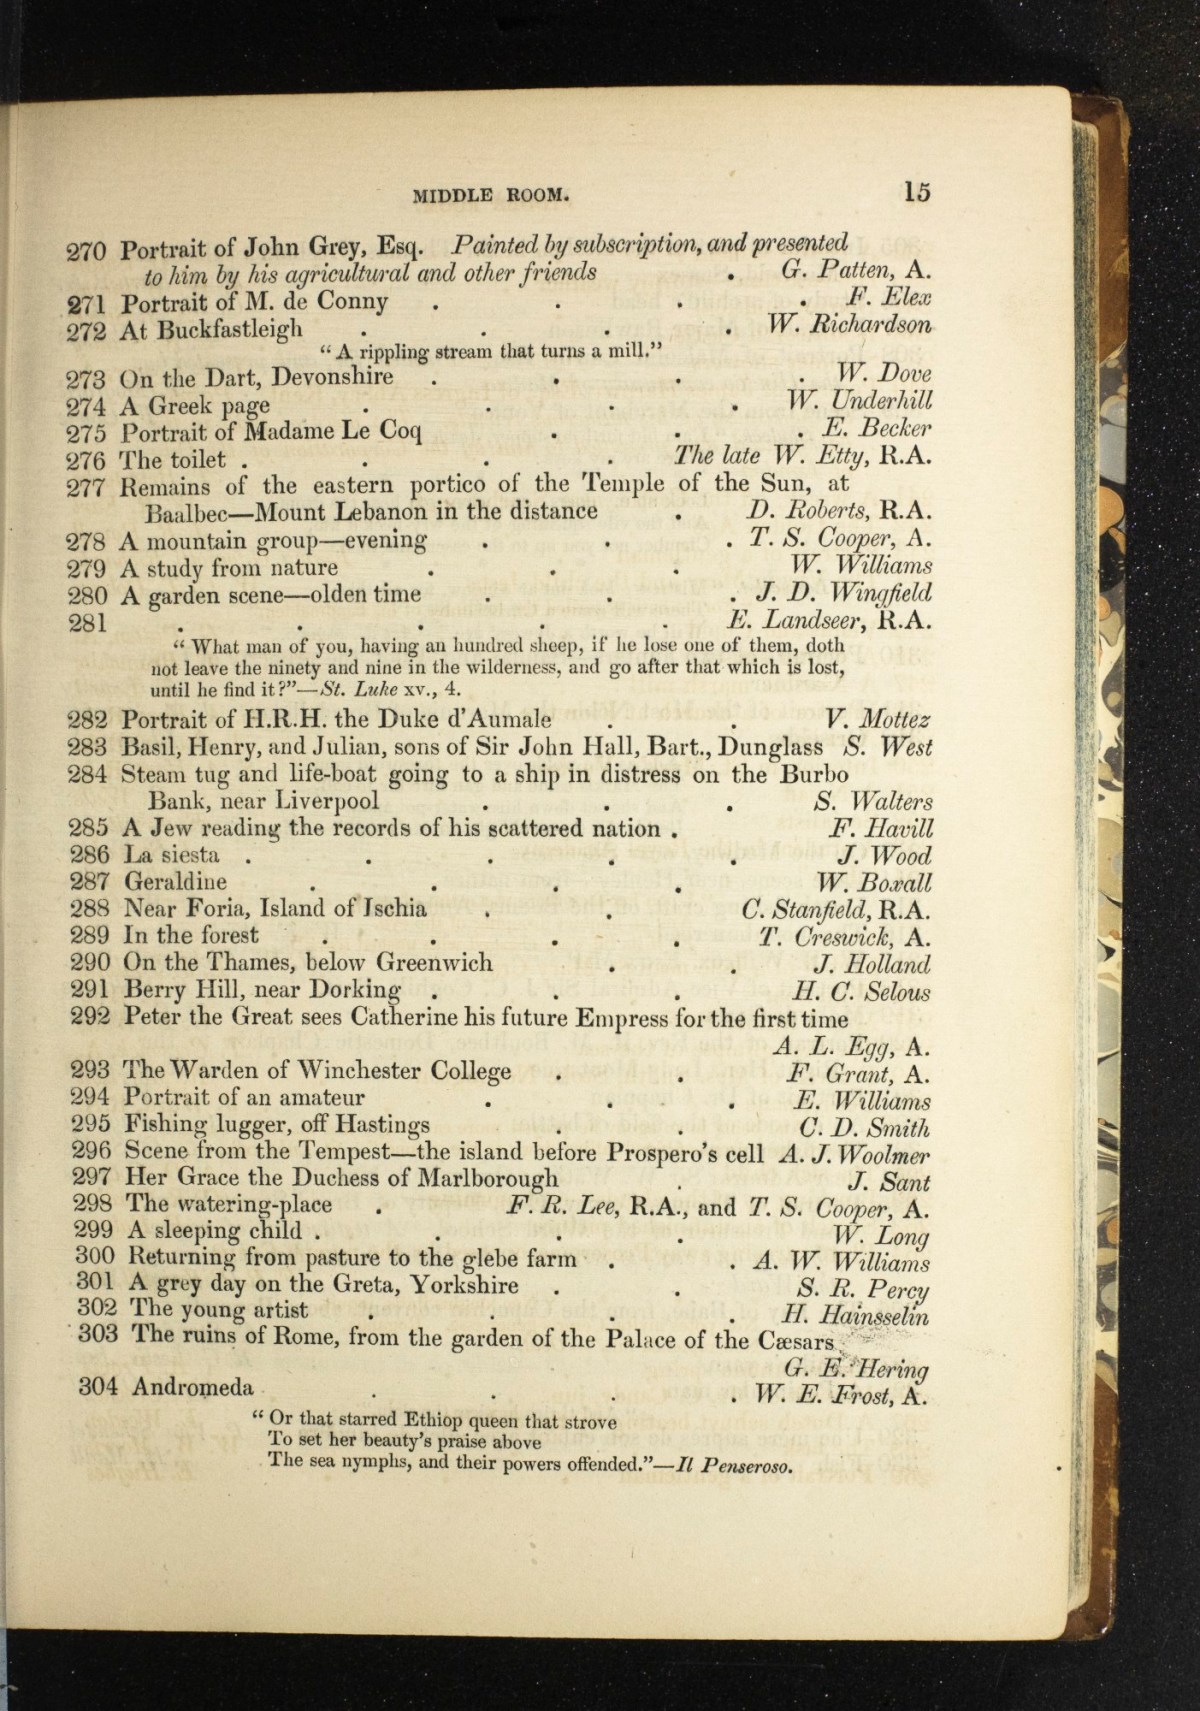 MIDDLE ROOM. 15
270 Portrait of John Grey, Esq. Painted by subscription, and presented
to him by his agricultural and other friends . G. Patten, A.
271 Portrait of M. de Conny . . . . F. Elex
272 At Buckfastleigh . . . . W. Richardson
“A rippling stream that turns a mill.”
273 On the Dart, Devonshire . . . . W. Dove
274 A Greek page . . . . W. Underhill
275 Portrait of Madame Le Coq . . . E. Becker
276 The toilet . . . . The late W. Etty, R.A.
277 Remains of the eastern portico of the Temple of the Sun, at
Baalbec—Mount Lebanon in the distance . D. Roberts, R.A.
278 A mountain group—evening . . . T. S. Cooper, A.
279 A study from nature . . . W. Williams
280 A garden scene—olden time . . . J. D. Wingfield
281 . . . . . E. Landseer, R.A.
“What man of you, having an hundred sheep, if he lose one of them, doth
not leave the ninety and nine in the wilderness, and go after that which is lost,
until he find it?”—St. Luke xv., 4.
282 Portrait of H.R.H. the Duke d’Aumale . . V. Mottez
283 Basil, Henry, and Julian, sons of Sir John Hall, Bart., Dunglass S. West
284 Steam tug and life-boat going to a ship in distress on the Burbo
Bank, near Liverpool . . . S. Walters
285 A Jew reading the records of his scattered nation . F. Havill
286 La siesta . . . . . J. Wood
287 Geraldine . . . . W. Boxall
288 Near Foria, Island of Ischia . . C. Stanfield, R.A.
289 In the forest . . . . T. Creswick, A.
290 On the Thames, below Greenwich . . J. Holland
291 Berry Hill, near Dorking . . . H. C. Selous
292 Peter the Great sees Catherine his future Empress for the first time
A. L. Egg, A.
293 The Warden of Winchester College . . F. Grant, A.
294 Portrait of an amateur . . . E. Williams
295 Fishing lugger, off Hastings . . C. D. Smith
296 Scene from the Tempest—the island before Prospero’s cell A. J. Woolmer
297 Her Grace the Duchess of Marlborough . J. Sant
298 The watering-place . F. R. Lee, R.A., and T. S. Cooper, A.
299 A sleeping child . . . . W. Long
300 Returning from pasture to the glebe farm . . A. W. Williams
301 A grey day on the Greta, Yorkshire . . S. R. Percy
302 The young artist . . . . H. Hainsselin
303 The ruins of Rome, from the garden of the Palace of the Cæsars
G. E. Hering
304 Andromeda . . . . W. E. Frost, A.
“Or that starred Ethiop queen that strove
To set her beauty’s praise above
The sea nymphs, and their powers offended.”—Il Penseroso.